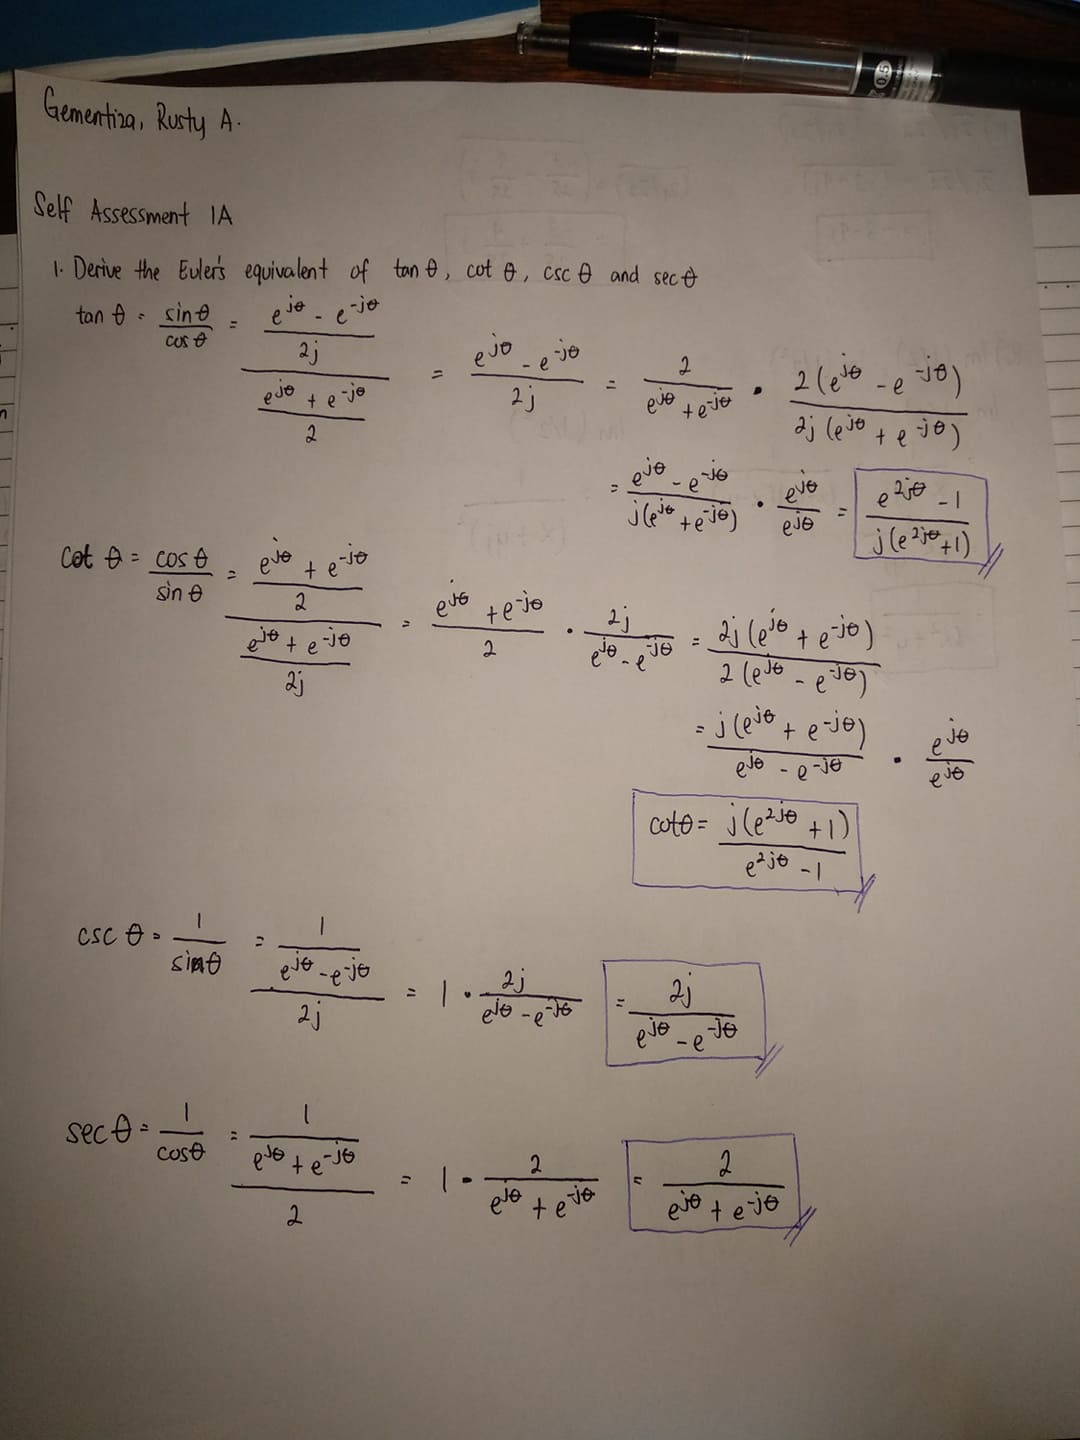 0.5
Gementiza, Rusty A.
Self Assessment 1A
1. Derive the Euler's equivalent of tan θ, cot θ, csc θ and sec θ
tan θ = sinθ/cosθ = ((e^jθ - e^-jθ)/2j)/((e^jθ + e^-jθ)/2) = (e^jθ - e^-jθ)/2j = 2/(e^jθ + e^-jθ) · 2(e^jθ - e^-jθ)/2j(e^jθ + e^-jθ)
= (e^jθ - e^-jθ)/j(e^jθ + e^-jθ) · e^jθ/e^jθ = (e^2jθ - 1)/j(e^2jθ + 1)
cot θ = cosθ/sinθ = ((e^jθ + e^-jθ)/2)/((e^jθ + e^-jθ)/2j) = (e^jθ + e^-jθ)/2 · 2j/(e^jθ - e^-jθ) = 2j(e^jθ + e^-jθ)/2(e^jθ - e^-jθ)
= j(e^jθ + e^-jθ)/(e^jθ - e^-jθ) · e^jθ/e^jθ
cotθ = j(e^2jθ + 1)/(e^2jθ - 1)
csc θ = 1/sinθ = 1/(e^jθ - e^-jθ)/2j = 1 · 2j/(e^jθ - e^-jθ) = 2j/(e^jθ - e^-jθ)
sec θ = 1/cosθ = 1/(e^jθ + e^-jθ)/2 = 1 · 2/(e^jθ + e^-jθ) = 2/(e^jθ + e^-jθ)